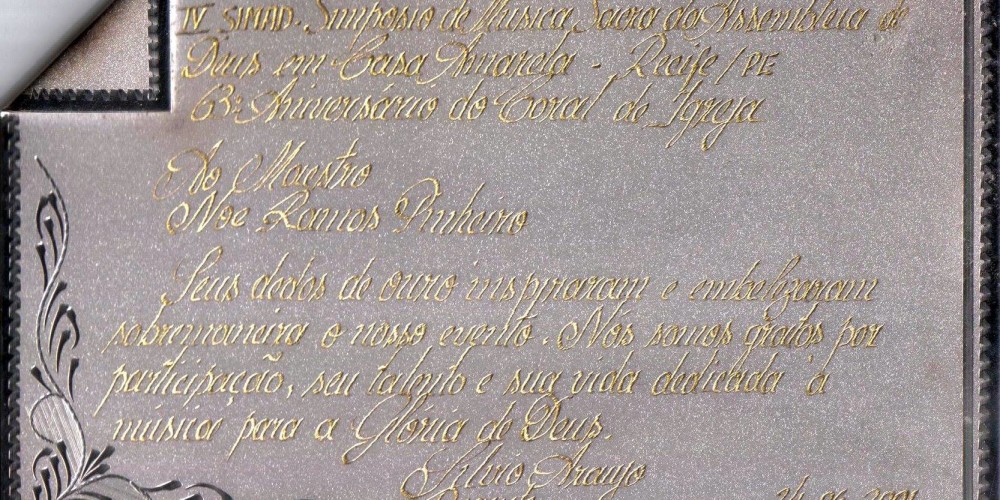 IV SIMAD - Simpósio de Música Sacra da Assembleia de
Deus em Casa Amarela - Recife / PE
63º Aniversário do Coral de Igreja
Ao Maestro
Noe Ramos Pinheiro
Seus dedos de ouro inspiraram e embelezaram
sobremaneira o nosso evento. Nós somos gratos por
participação, seu talento e sua vida dedicada a
música para a Glória de Deus.
Silvio Araujo